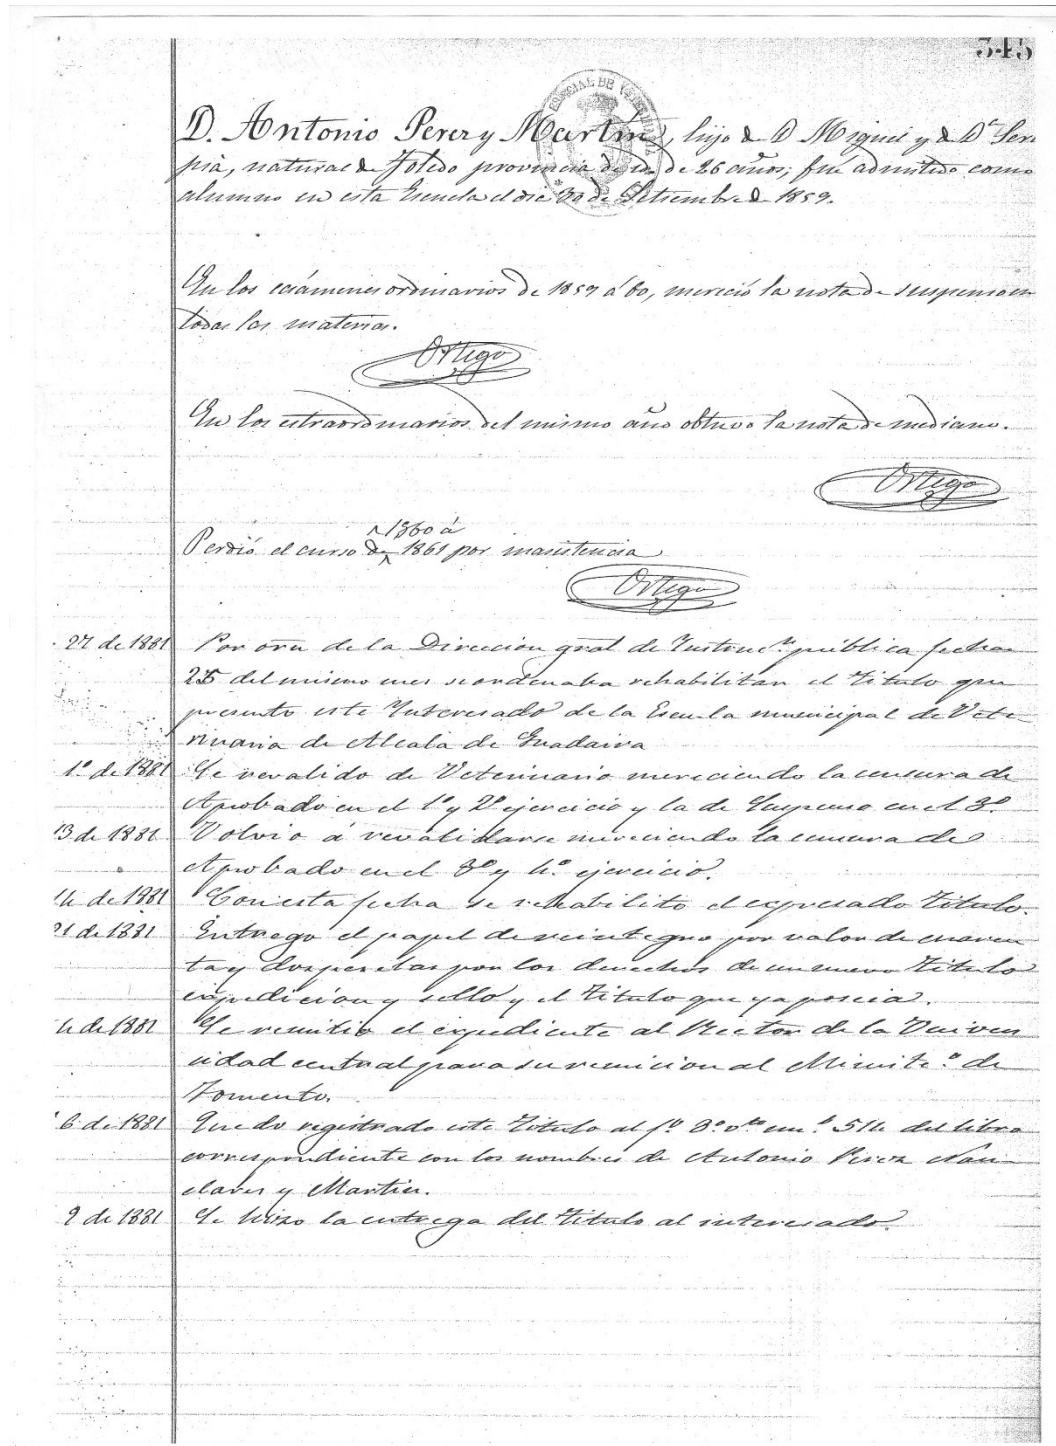 545
ESPECIAL DE VETERI
D. Antonio Perez y Martin, hijo de D Miguel y de Dª Sera
pia, natural de Toledo provincia de id. de 26 años; fue admitido como
alumno en esta Escuela el dia 30 de Setiembre de 1859.
En los ecsámenes ordinarios de 1859 á 60, mereció la nota de suspenso en
todas las materias.
Ortego
En los estraordinarios del mismo año obtuvo la nota de mediano.
Ortego
1860 á
Perdió el curso de 1861 por inasistencia
Ortego
27 de 1881 Por orn de la Direccion gral de Instrucn pública fecha
25 del mismo mes se ordenaba rehabilitar el titulo que
presento este Interesado de la Escuela municipal de Vete-
rinaria de Alcala de Guadaira
1º de 1881 Se revalido de Veterinario mereciendo la censura de
Aprobado en el 1º y 2º ejercicio y la de Suspenso en el 3º
13 de 1881 Volvio á revalidarse mereciendo la censura de
Aprobado en el 3º y 4º ejercicio.
14 de 1881 Con esta fecha se rehabilito el espresado titulo.
21 de 1881 Entrego el papel de reintegro por valor de cuaren
ta y dos pesetas por los derechos de un nuevo titulo
expedicion y sello y el titulo que ya poseia.
de 1881 Se remitio el expediente al Rector de la Univer
sidad central para su remision al Ministº de
Fomento.
6 de 1881 Quedo registrado este titulo al fº 3º vto numº 514 del libro
correspondiente con los nombres de Antonio Perez Nan
clares y Martin.
9 de 1881 Se hizo la entrega del titulo al interesado.